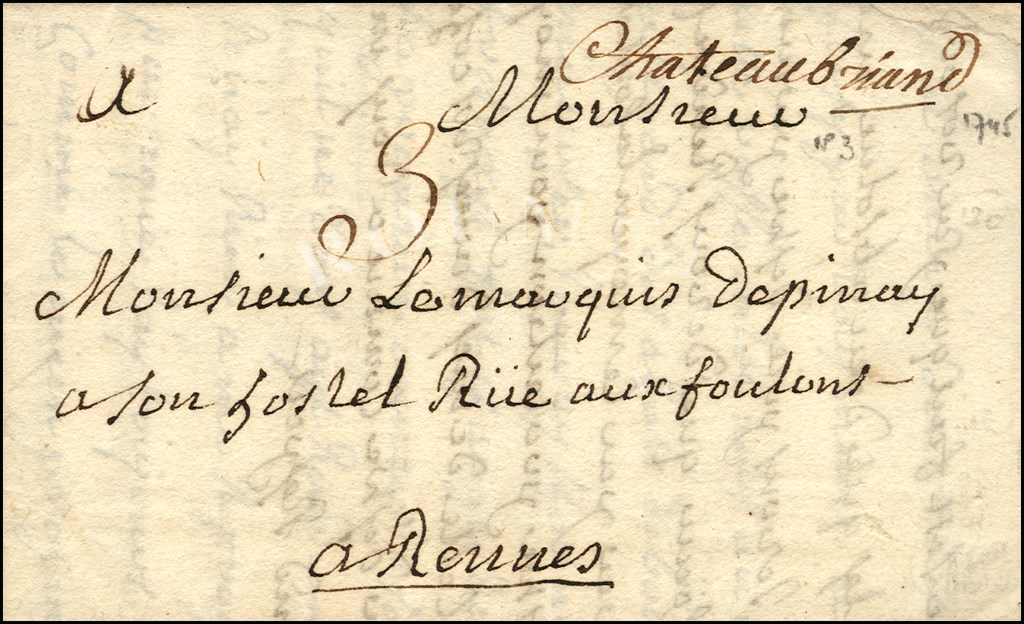 Chateaubriand
a Monsieur
1745
n° 3
3
Monsieur Lemarquis Depinay
a son hostel Rüe aux foulons
a Rennes